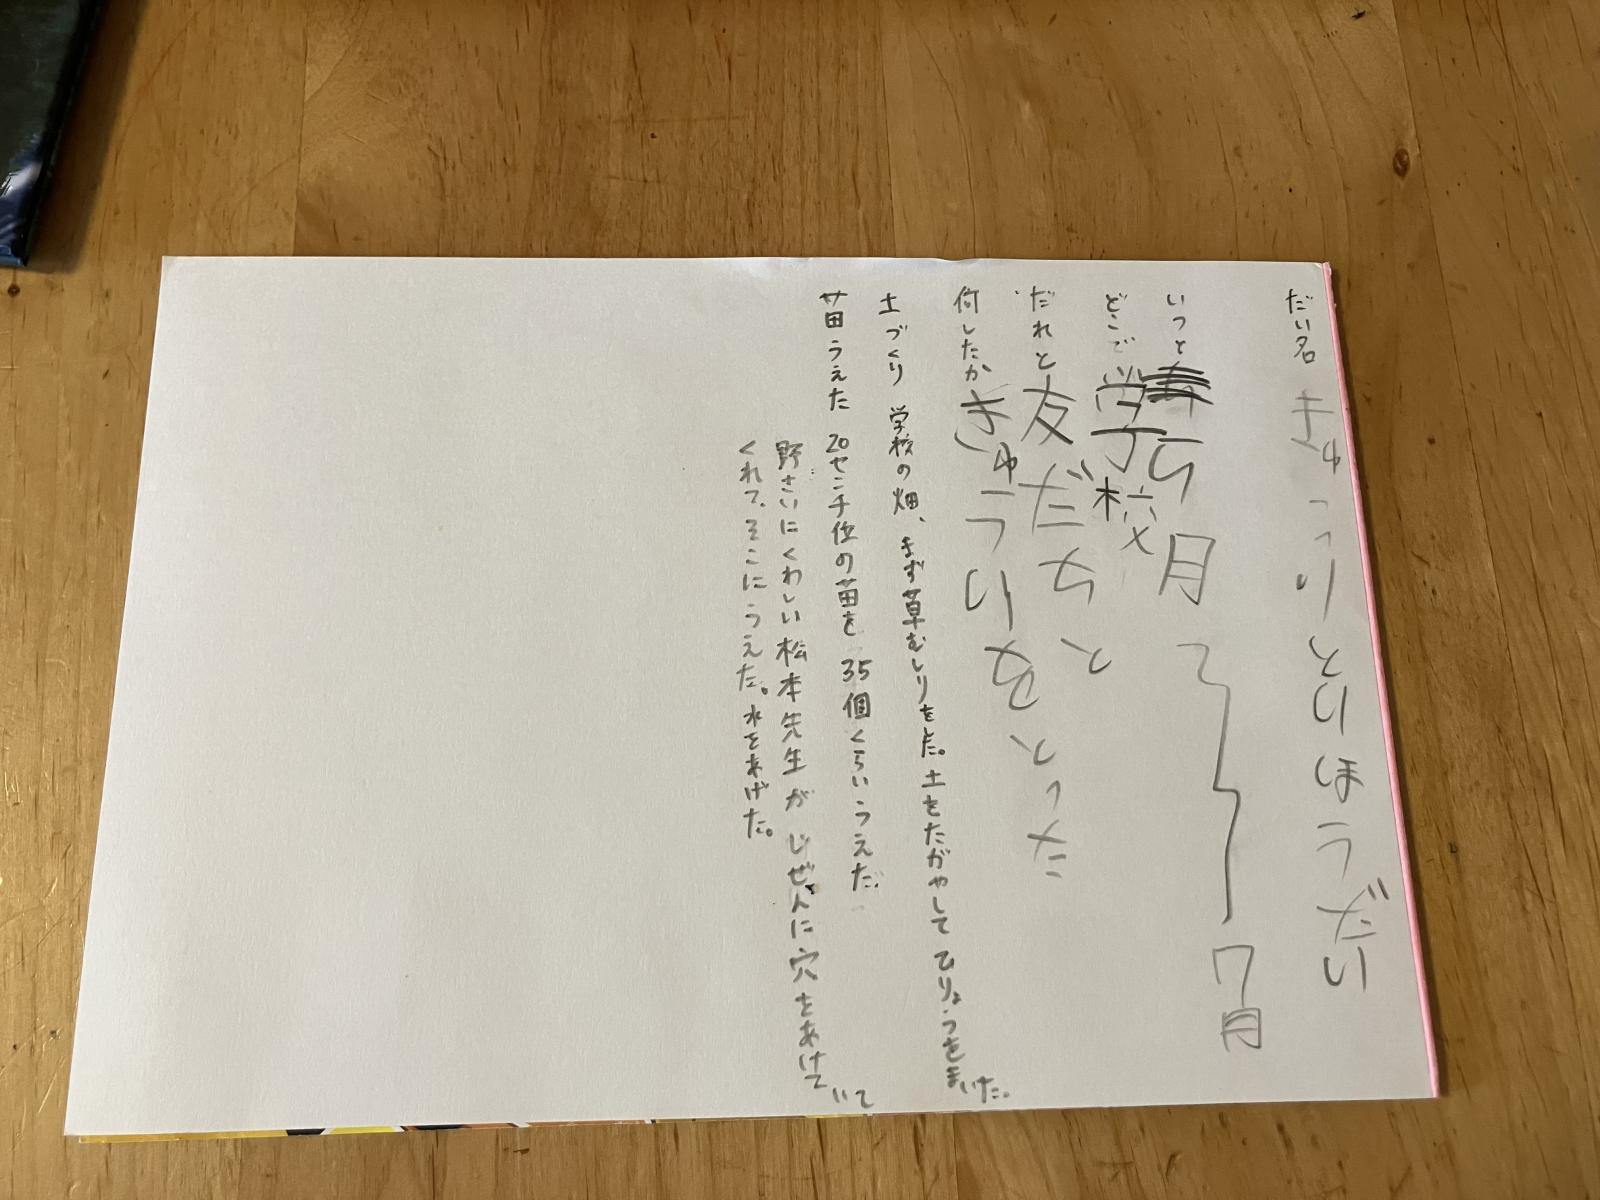 だい名 きゅうりとりほうだい
いつと 5月〜7月
どこで 学校
だれと 友だちと
何したか きゅうりをとった
土づくり 学校の畑、まず草むしりをした。土をたがやしてひりょうをまいた。
苗うえた 20センチ位の苗を 35個くらいうえた
野さいにくわしい松本先生が じぜんに穴をあけて いて
くれて、そこにうえた。水をあげた。